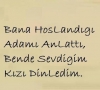 Bana HosLandıgı
Adamı AnLattı,
Bende Sevdigim
Kızı DinLedim.